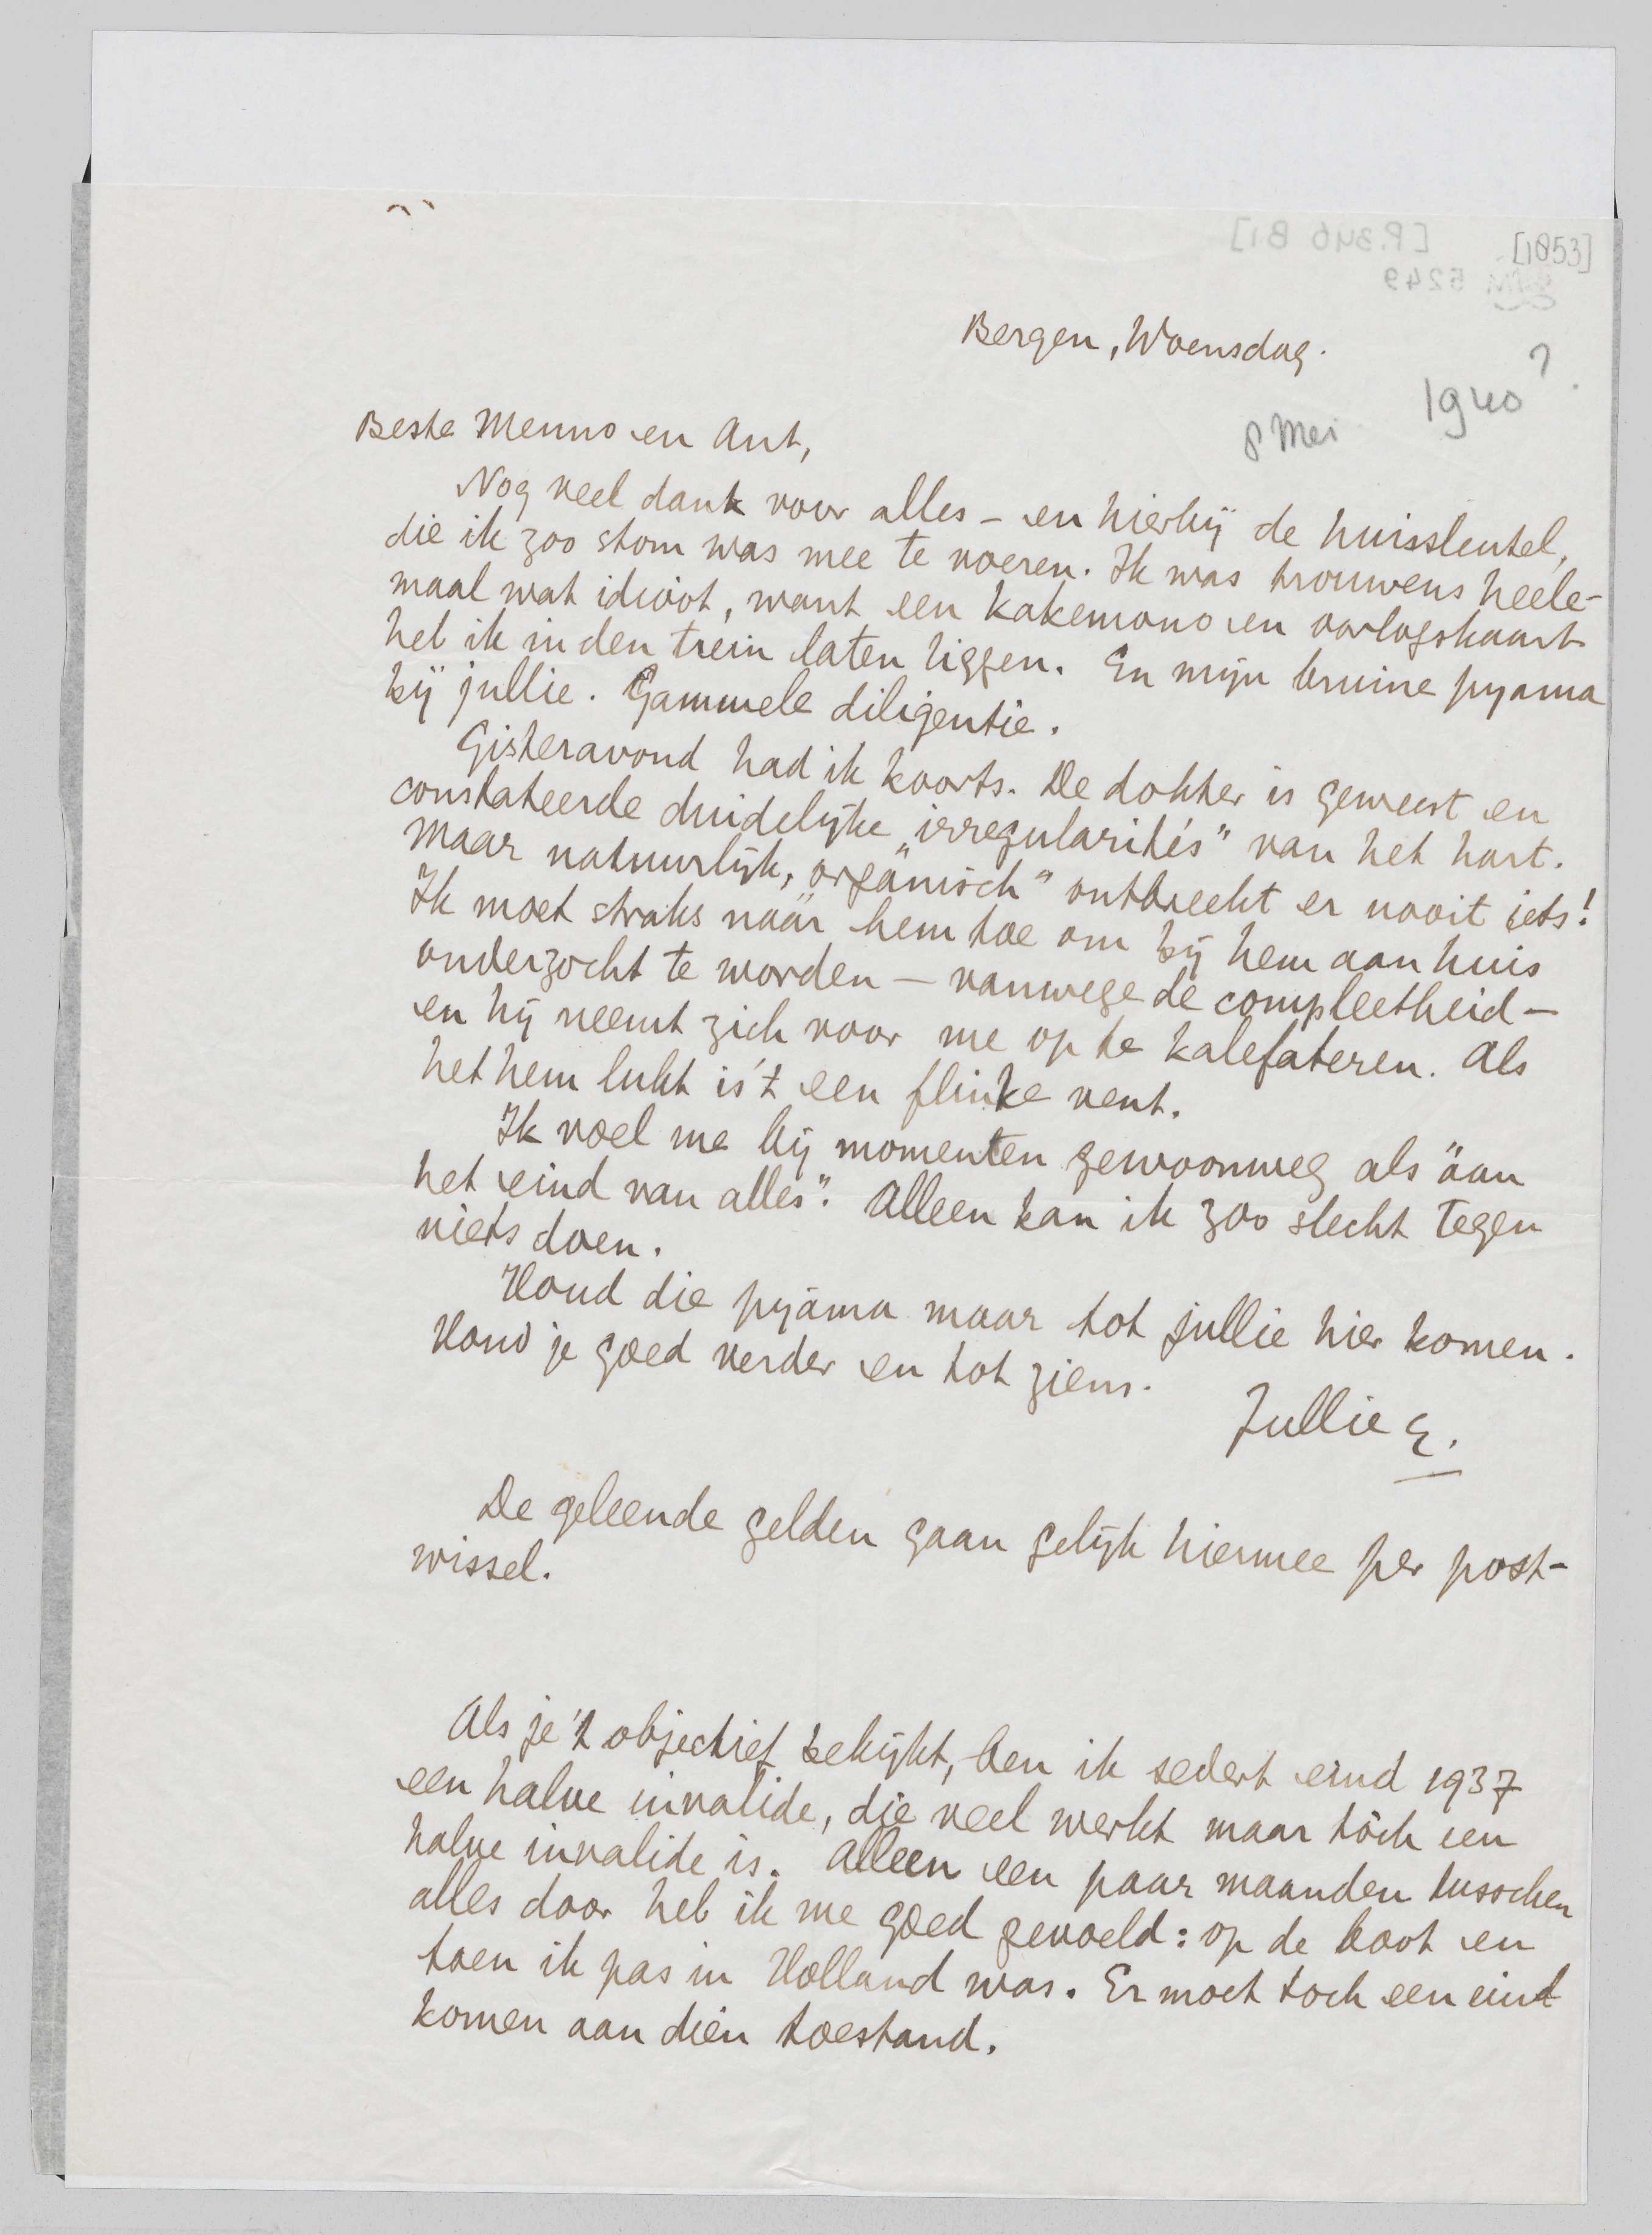 [P.346 B1]
[1853]
5249
Bergen, Woensdag.
1940?
8 Mei
Beste Menno en Ant,
Nog veel dank voor alles – en hierbij de huissleutel,
die ik zoo stom was mee te voeren. Ik was trouwens heele-
maal wat idioot, want een kakemono en oorlogskaart
heb ik in den trein laten liggen. En mijn bruine pyama
bij jullie. Gammele diligentie.
Gisteravond had ik koorts. De dokter is geweest en
constateerde duidelijke „irregularités” van het hart.
Maar natuurlijk, „orgánisch” ontbreekt er nooit iets!
Ik moet straks náár hem toe om bij hem aan huis
onderzocht te worden – vanwege de compleetheid –
en hij neemt zich voor me op te kalefateren. Als
het hem lukt is 't een flinke vent.
Ik voel me bij momenten gewoonweg als "aan
het eind van alles". Alleen kan ik zoo slecht tegen
niets doen.
Houd die pyama maar tot jullie hier komen.
Houd je goed verder en tot ziens.
Jullie E.
De geleende gelden gaan gelijk hiermee per post-
wissel.
Als je 't objectief bekijkt, ben ik sedert eind 1937
een halve invalide, die veel werkt maar tóch een
halve invalide is. Alleen een paar maanden tusschen
alles door heb ik me goed gevoeld: op de boot en
toen ik pas in Holland was. Er moet toch een eind
komen aan dien toestand.